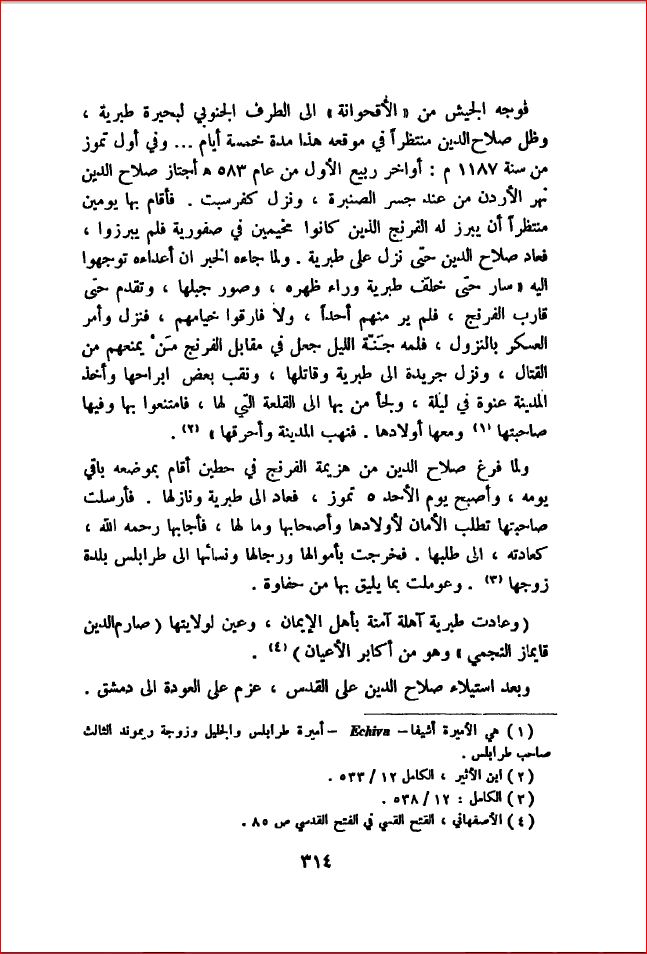 فوجه الجيش من « الأقحوانة » الى الطرف الجنوبي لبحيرة طبرية ،
وظل صلاح الدين منتظراً في موقعه هذا مدة خمسة أيام ... وفي أول تموز
من سنة ١١٨٧ م : أواخر ربيع الأول من عام ٥٨٣ ه أجتاز صلاح الدين
نهر الأردن من عند جسر الصنبرة ، ونزل كفرسبت . فأقام بها يومين
منتظراً أن يبرز له الفرنج الذين كانوا مخيمين في صفورية فلم يبرزوا ،
فعاد صلاح الدين حتى نزل على طبرية . ولما جاءه الخبر ان أعداءه توجهوا
اليه « سار حتى خلّف طبرية وراء ظهره ، وصور جبلها ، وتقدم حتى
قارب الفرنج ، فلم ير منهم أحداً ، ولا فارقوا خيامهم ، فنزل وأمر
العسكر بالنزول ، فلمه جَنَّهُ الليل جعل في مقابل الفرنج مَنْ يمنعهم من
القتال ، ونزل جريدة الى طبرية وقاتلها ، ونقب بعض ابراحها وأخذ
المدينة عنوة في ليلة ، ولجأ من بها الى القلعة التي لها ، فامتنعوا بها وفيها
صاحبتها (١) ومعها أولادها . فنهب المدينة وأحرقها » (٢) .
ولما فرغ صلاح الدين من هزيمة الفرنج في حطين أقام بموضعه باقي
يومه ، وأصبح يوم الأحد ٥ تموز ، فعاد الى طبرية ونازلها . فأرسلت
صاحبتها تطلب الأمان لأولادها وأصحابها وما لها ، فأجابها رحمه الله ،
كعادته ، الى طلبها . فخرجت بأموالها ورجالها ونسائها الى طرابلس بلدة
زوجها (٣) . وعوملت بما يليق بها من حفاوة .
( وعادت طبرية آهلة آمنة بأهل الإيمان ، وعين لولايتها ( صارم الدين
قايماز النجمي » وهو من أكابر الأعيان ) (٤) .
وبعد استيلاء صلاح الدين على القدس ، عزم على العودة الى دمشق .
( ١ ) هي الأميرة أشيفا – Echiva – أميرة طرابلس والجليل وزوجة ريموند الثالث
صاحب طرابلس .
( ٢ ) ابن الأثير ، الكامل ١٢ / ٥٣٣ .
( ٣ ) الكامل : ١٢ / ٥٣٨ .
( ٤ ) الأصفهاني ، الفتح القسي في الفتح القدسي ص ٨٥ .
٣١٤